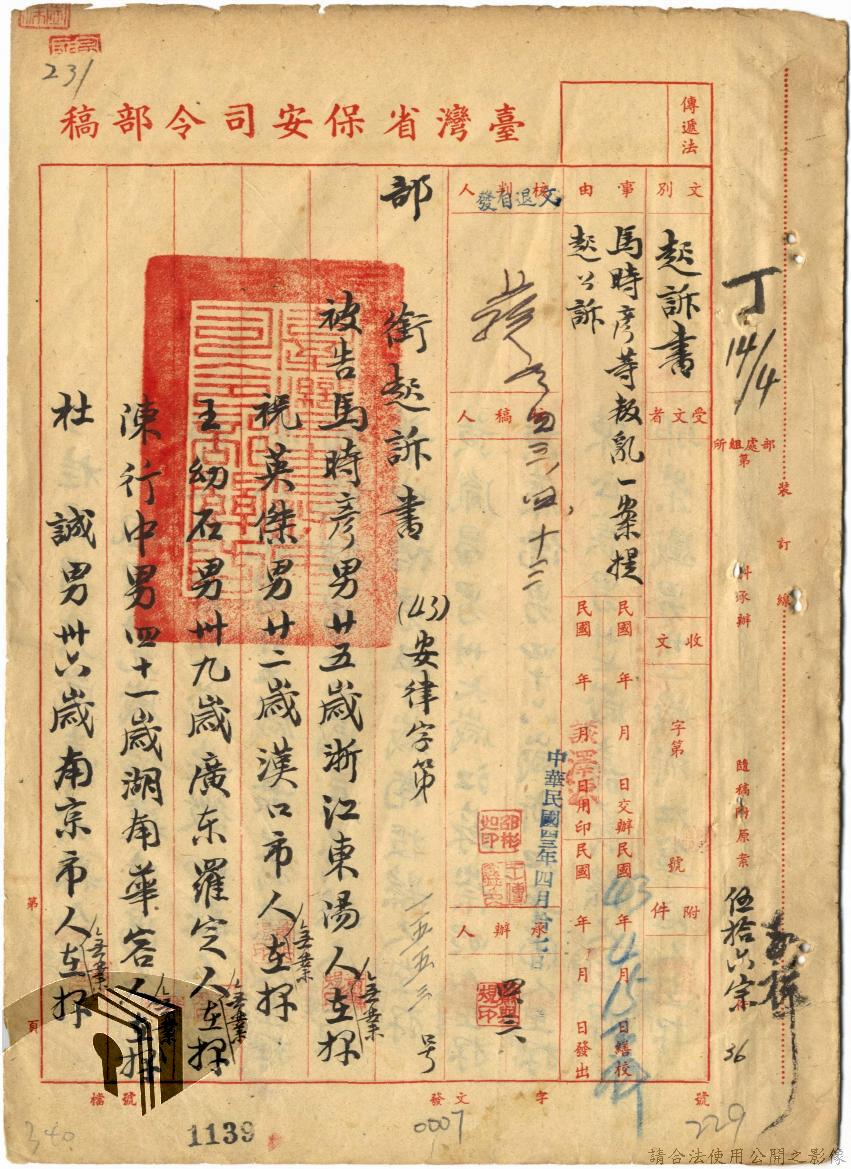 231
臺灣省保安司令部稿
傳遞法
丁
14/4
部處組所
第
科承辦
裝訂線
隨稿附原案
伍拾六宗
36
文別
起訴書
受文者
收文
字第
號
附件
事由
馬時彥等叛亂一案提
起公訴
民國年月日交辦
民國年月日繕校
43 4 15
民國年月日用印
民國年月日發出
中華民國四三年四月拾七日
核判人
文退自發
發
四三、四、十三
核稿人
承辦人
部銜起訴書
(43)安律字第一五五三號
被告馬時彥男廿五歲浙江東湯人无業在押
祝英傑男廿二歲漢口市人无業在押
王幼石男卅九歲廣东羅定人无業在押
陳行中男四十一歲湖南華容人无業在押
杜誠男卅六歲南京市人无業在押
第頁
檔號
發文字號
340
1139
0007
229
請合法使用公開之影像